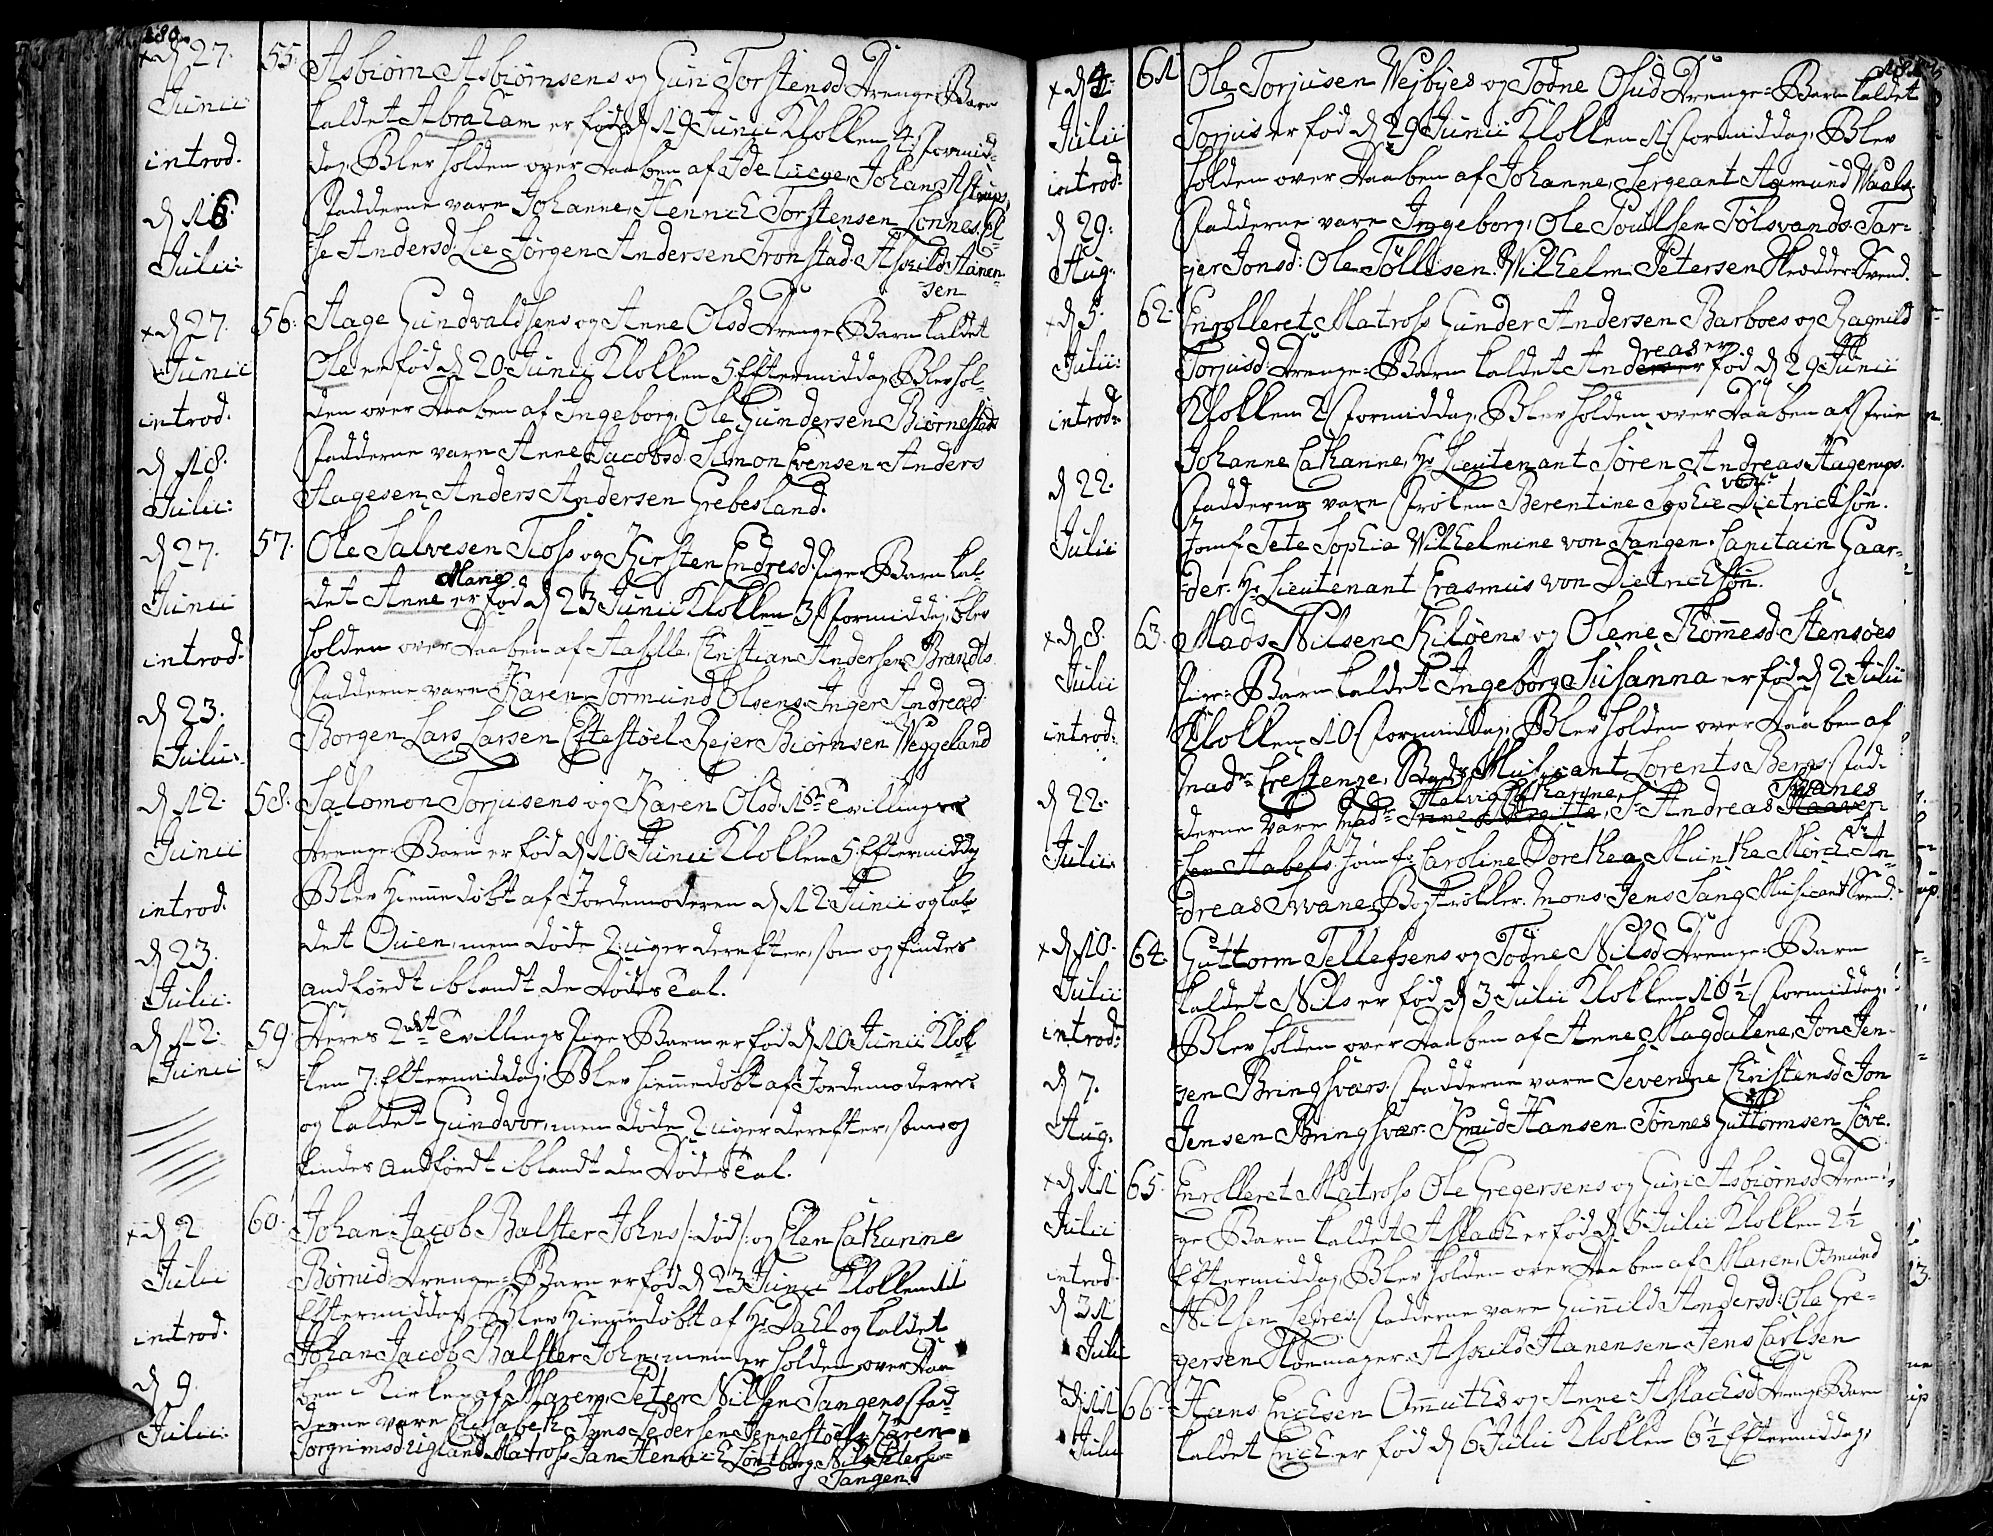 280.
+ d 27. Junii introd. d 16. Julii:
55. Asbiørn Asbiørnsens og Guri Torstensd Drenge-Barn
kaldet Abraham er fød d 19 Junii Klokken 4 formid-
dag, Blev holden over Daaben af Ide Lucye, Johan Astrups,
Fadderne vare Johanne, Hennich Torstensen Lonnes, El-
se Andersd: Lie Jørgen Andersen Tronstad. Askild Hanen-
sen
+ d 27. Junii introd. d 18. Julii:
56. Aage Gundvaldsens og Anne Olsd Drenge-Barn kaldet
Ole er fød d 20 Junii Klokken 5 Eftermiddag, Blev hol-
den over Daaben af Ingeborg, Ole Gundersen Biørnestads
Fadderne vare Anne Jacobsd. Simon Evensen Anders
Aagesen Anders Andersen Grebesland.
d 27. Junii introd. d 23. Julii.
57. Ole Salvesen Tioss og Kirsten Endresd. Pige-Barn kal-
Marie
det Anne er fød d 23 Junii Klokken 3 Formiddag, blev
holden over Daaben af Aasille, Christian Andersen Brandts
Fadderne vare Karen Tormund Olsens. Inger Andreæd
Borgen Lars Larsen Eftestøel Rejer Biørnsen Weggeland
d 12. Junii introd. d 23. Julii.
58. Salomon Torjusens og Karen Olsd. 1ste Tvillings
Drenge-Barn er fød d 10 Junii Klokken 5 Eftermiddag
Blev hiemmedøbt af Jordemoderen d 12 Junii og kal-
det Ouen, men døde 2 uger derefter, som og findes
andførdt iblandt de Dødes Tal.
d 12. Junii
59. Deres 2den Tvillings Pige-Barn er fød d 10 Junii Klok-
ken 7. Eftermiddag, Blev hiemmedøbt af Jordemoderen
og kaldet Gundvor, men døde 2 uger derefter, som og
findes andførdt iblandt de Dødes Tal.
+ d 2 Julii introd. d 9. Julii.
60. Johan Jacob Balster Johns /: død :/ og Elen Catharine
Børnid: Drenge-Barn er fød d 23 Junii Klokken 11
Eftermiddag, Blev hiemmedøbt af Hr. Dahl og kaldet
Johan Jacob Balster John, men er holden over Daa-
ben i Kirken af Maren, Peter Nilsen Tangens, Fad-
derne vare Elisabeth Jens Pedersen Jennestøels, Karen
Torgrimsd Rigland Matross Jan Hennich Nils Petersen
Tangen.
+ d 4. Julii introd: d 29. Aug.
61 Ole Torjusen Wejbyes og Todne Olsd Drenge-Barn kaldet
Torjus er fød d 29 Junii Klokken 11 formiddag, Blev
holden over Daaben af Johanne, Sergeant Agmund Waals.
Fadderne vare Ingeborg, Ole Poulsen Tolsvands. Tar-
jer Jonsd: Ole Tøllisen. Wilhelm Petersen Skrædder-Svend.
+ d 5. Julii. introd: d 22. Julii
62. Enrolleret Matross Gunder Andersen Barboes og Ragnild
reas er
Torjusd. Drenge-Barn kaldet Anders er fød d 29 Junii
Klokken 2 formiddag, Blev holden over Daaben af Frue
Johanne Catharine, Hr. Lieutenant Søren Andreas Aagerups.
von
Fadderne vare Frøken Berentine Sophie Dietrichsøn.
Jomf. Tete Sophia Wilhelmine von Tangen. Capitain Gaar-
der. Hr. Lieutenant Erasmus von Dietrichsøn.
+ d 8. Julii introd: d 22. Julii.
63. Mads Nilsen Kiløens og Olene Thommesd: Stensøes
Pige-Barn kaldet Ingeborg Susanna er fød d 2 Julii
Klokken 10 Formiddag, Blev holden over Daaben af
Mad. Crestenze, Musicant Lorents Bergs. Fad-
Halvig Catharine, Swanes
derne vare Mad. Sr. Andreas
Sr. An-
Habels: Jomfr. Caroline Dorethea Munthe Morch
dreas Swane. Mons. Jens Lang Musicant Svend.
+ d 10. Julii introd: d 7. Aug.
64. Guttorm Tellefsens og Todne Nilsd Drenge-Barn
kaldet Nils er fød d 3 Julii Klokken 10 1/2 Formiddag.
Blev holden over Daaben af Anne Magdalene, Jon Jen-
sen Bringsværs. Fadderne vare Severine Christensd Jon
Jensen Bringsvær. Knud Hansen. Tønnes Guttormsen Løve.
+ d 11 Julii introd. d 31 Julii
65. Enrolleret Matross Ole Gregersens og Guri Asbiørnsd Dren-
ge Barn kaldet Aslach er fød d 5 Julii Klokken 2 1/2
Eftermiddag, Blev holden over Daaben af Maren, Osmund
Nilsen Legrei. Fadderne vare Gunnild Andersd: Ole Gre-
gersen Skoemager. Askild Hanensen Jens Carlsen
+ d 11 Julii
66. Hans Erichsen Ommuths og Anne Aslachsd Drenge-Barn
kaldet Erich er fød d 6 Julii Klokken 6 1/2 Eftermiddag,